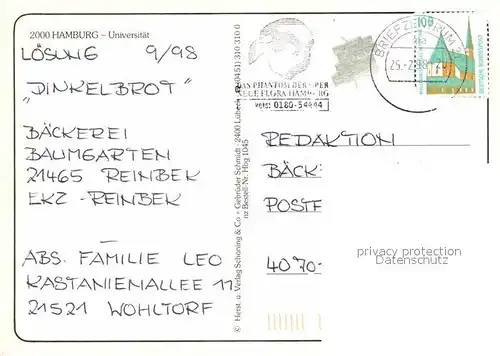 2000 HAMBURG – Universität
LÖSUNG 9/98
"DINKELBROT"
BÄCKEREI
BAUMGARTEN
21465 REINBEK
EKZ - REINBEK
ABS. FAMILIE LEO
KASTANIENALLEE 11
21521 WOHLTORF
© Herst. u. Verlag Schöning & Co + Gebrüder Schmidt · 2400 Lübeck (0451) 310 310 0
nz Bestell-Nr. Hbg 1045
DAS PHANTOM DER OPER
NEUE FLORA HAMBURG
BRIEFZENTRUM 2
100
DEUTSCHE BUNDESPOST
REDAKTION
BÄCK
POSTF
4070-
privacy protection
Datenschutz